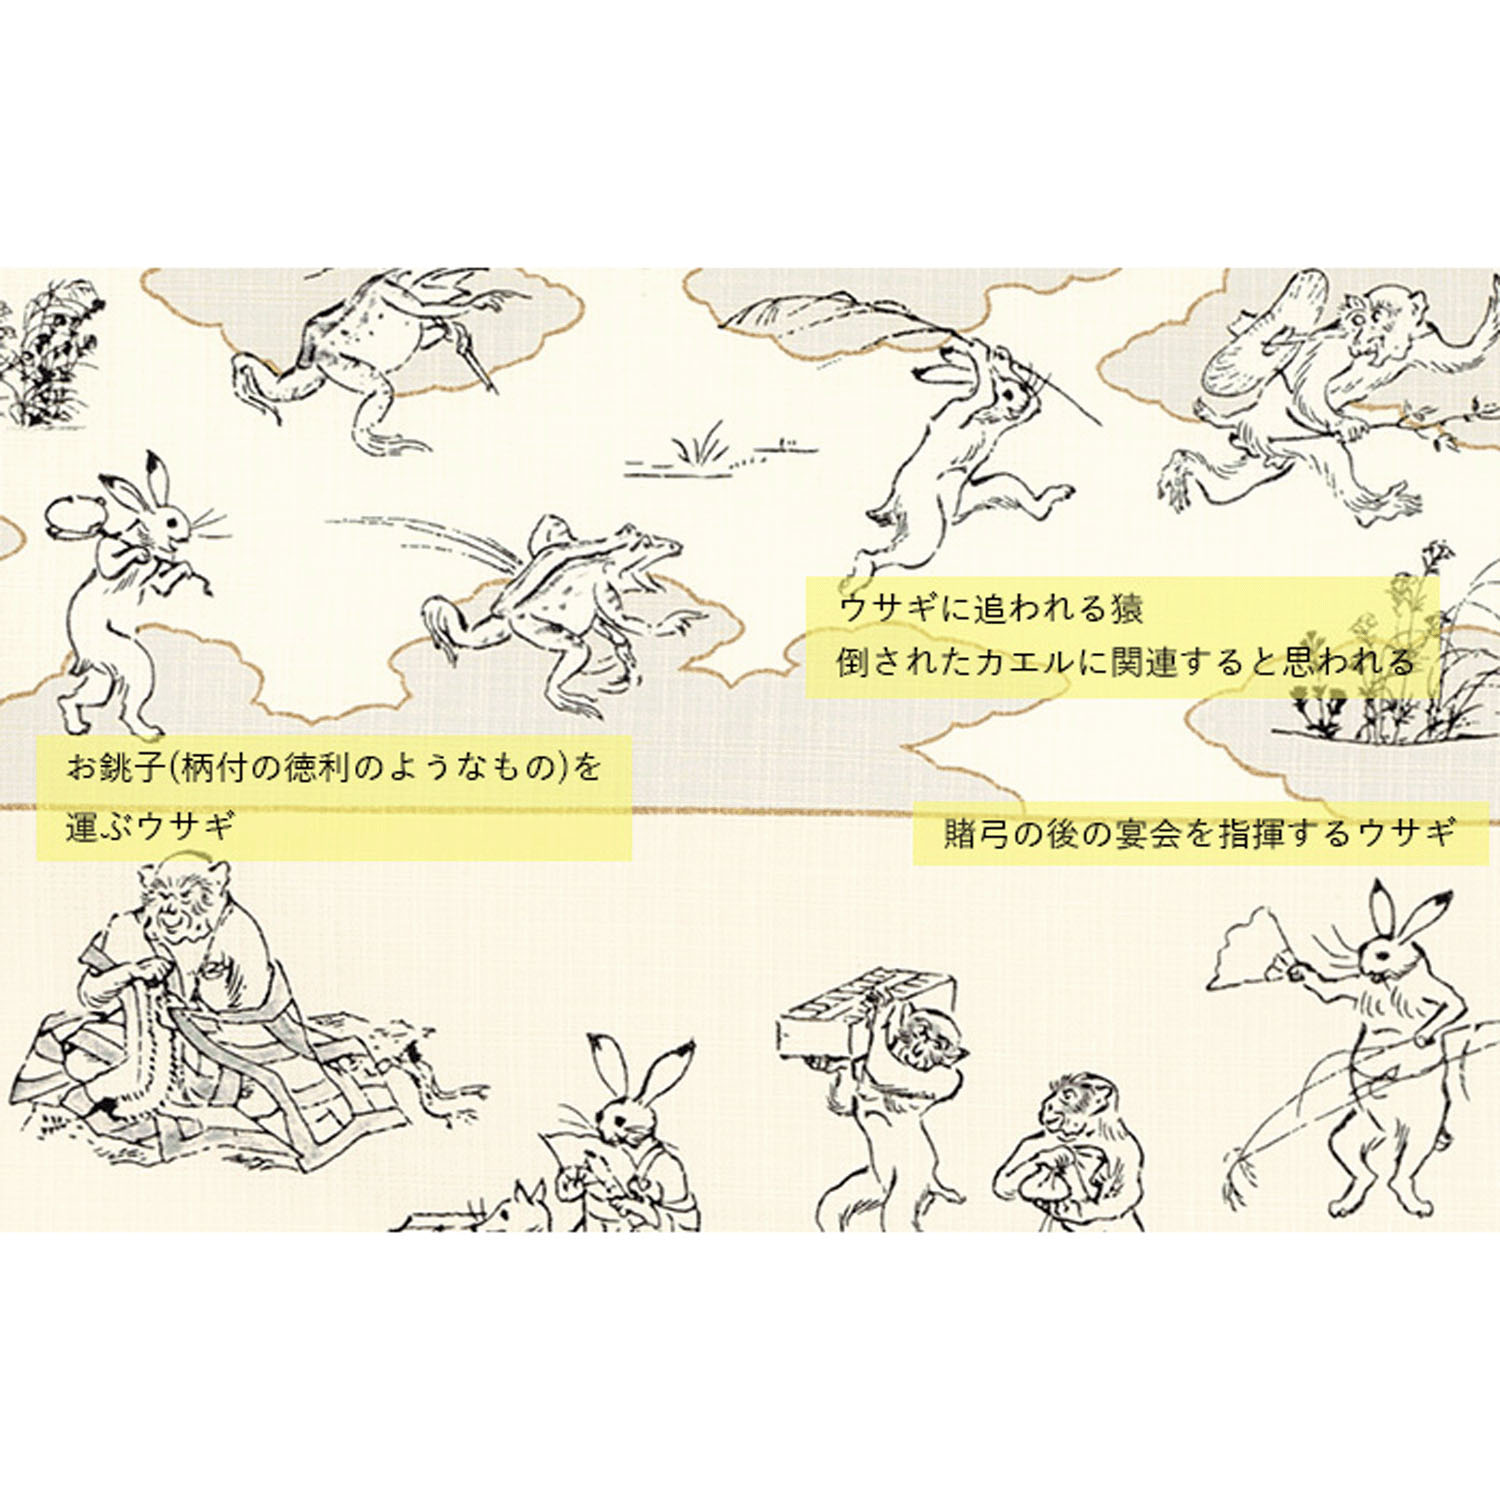 ウサギに追われる猿
倒されたカエルに関連すると思われる
お銚子(柄付の徳利のようなもの)を
運ぶウサギ
賭弓の後の宴会を指揮するウサギ